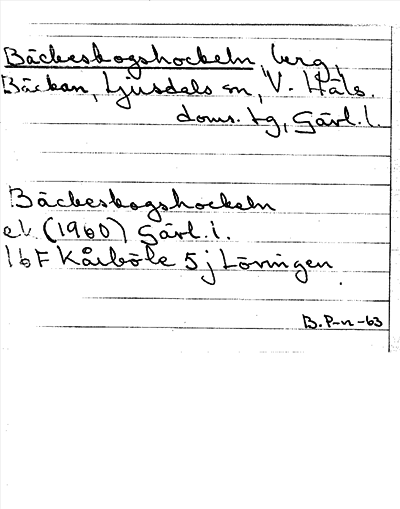 Bäckesbogshockeln, berg,
Bäckan, Ljusdals sn, V. Häls.
doms. tg, Gävl. l.
Bäckesbogshockeln
ek. (1960) Gävl. l.
16F Kårböle 5j Löningen
B. P-n -63